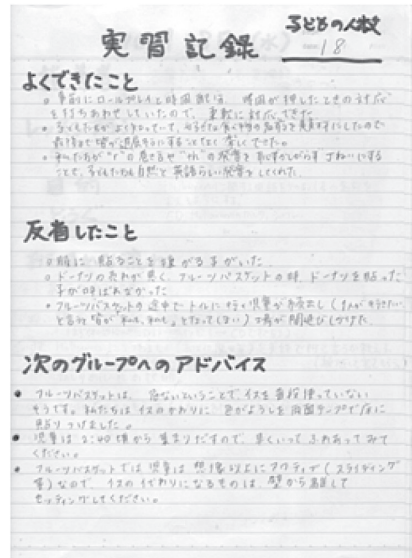 子どもの人数
実習記録 18
よくできたこと
○事前にロールプレイと時間配分、時間が押したときの対応
を打ちあわせしていたので、柔軟に対応できた。
○子どもたちがよく知っていて、好きな食べ物の名前を
最後まで皆が退屈そうにすることなく楽しくできた。
○私たちが"r"の巻き舌や"th"の発音を恥ずかしがらずていねいにする
ことで、子どもたちも自然と英語らしい発音をしてくれた。
反省したこと
○服に貼ることを嫌がる子がいた。
○ドーナツの売れが悪く、フルーツバスケットの時、ドーナツを貼った
子が呼ばれなかった
○フルーツバスケットの途中でトイレに行く児童が続出し(1人が行きたい
と言うと皆が「私も、私も」となってしまい)場が間延びしかけた。
次のグループへのアドバイス
●フルーツバスケットは、危ないということでイスを普段使っていない
そうです。私たちはイスのかわりに色がようしを両面テープで床に
貼りつけました。
●児童は2:40頃から集まりだすので、早くいってふれあってみて
ください。
●フルーツバスケットでは児童は想像以上にアクティブ(スライディング
等)なので、イスの代わりになるものは、壁から離して
セッティングしてください。